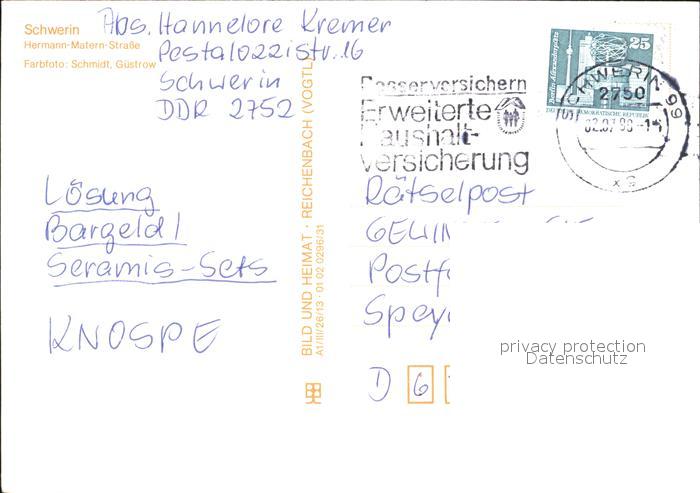 Schwerin
Hermann-Matern-Straße
Farbfoto: Schmidt, Güstrow
Abs. Hannelore Kremer
Pestalozzistr. 16
Schwerin
DDR 2752
Besser versichern
Erweiterte
Haushalt-
versicherung
25
Berlin, Alexanderplatz
DEMOKRATISCHE REPUBLIK
SCHWERIN 99
2750
Lösung
Bargeld/
Seramis-Sets
KNOSPE
BILD UND HEIMAT · REICHENBACH (VOGTL)
A1/III/26/13 · 01 02 0296/31
Rätselpost
GEWIN
Postf
Spey
D 6
privacy protection
Datenschutz